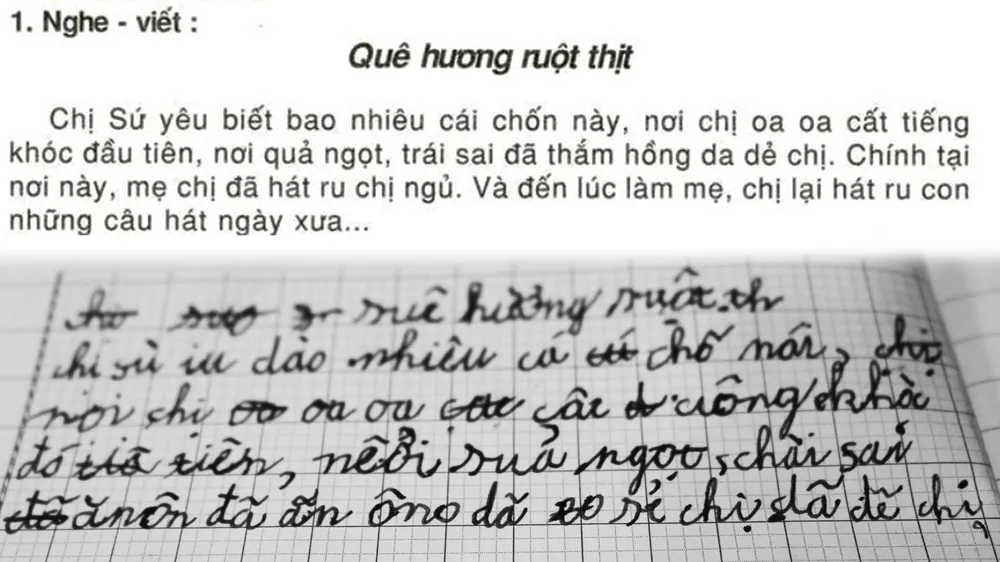 1. Nghe - viết :
Quê hương ruột thịt
Chị Sứ yêu biết bao nhiêu cái chốn này, nơi chị oa oa cất tiếng
khóc đầu tiên, nơi quả ngọt, trái sai đã thắm hồng da dẻ chị. Chính tại
nơi này, mẹ chị đã hát ru chị ngủ. Và đến lúc làm mẹ, chị lại hát ru con
những câu hát ngày xưa...
ruột th
chi sù iu dào nhiêu cá chố nái,
nơi chị oa oa khòi
đó tiên, ruả ngọt, chài sai
đã ăn ông dã sẻ chị dã dẽ chị